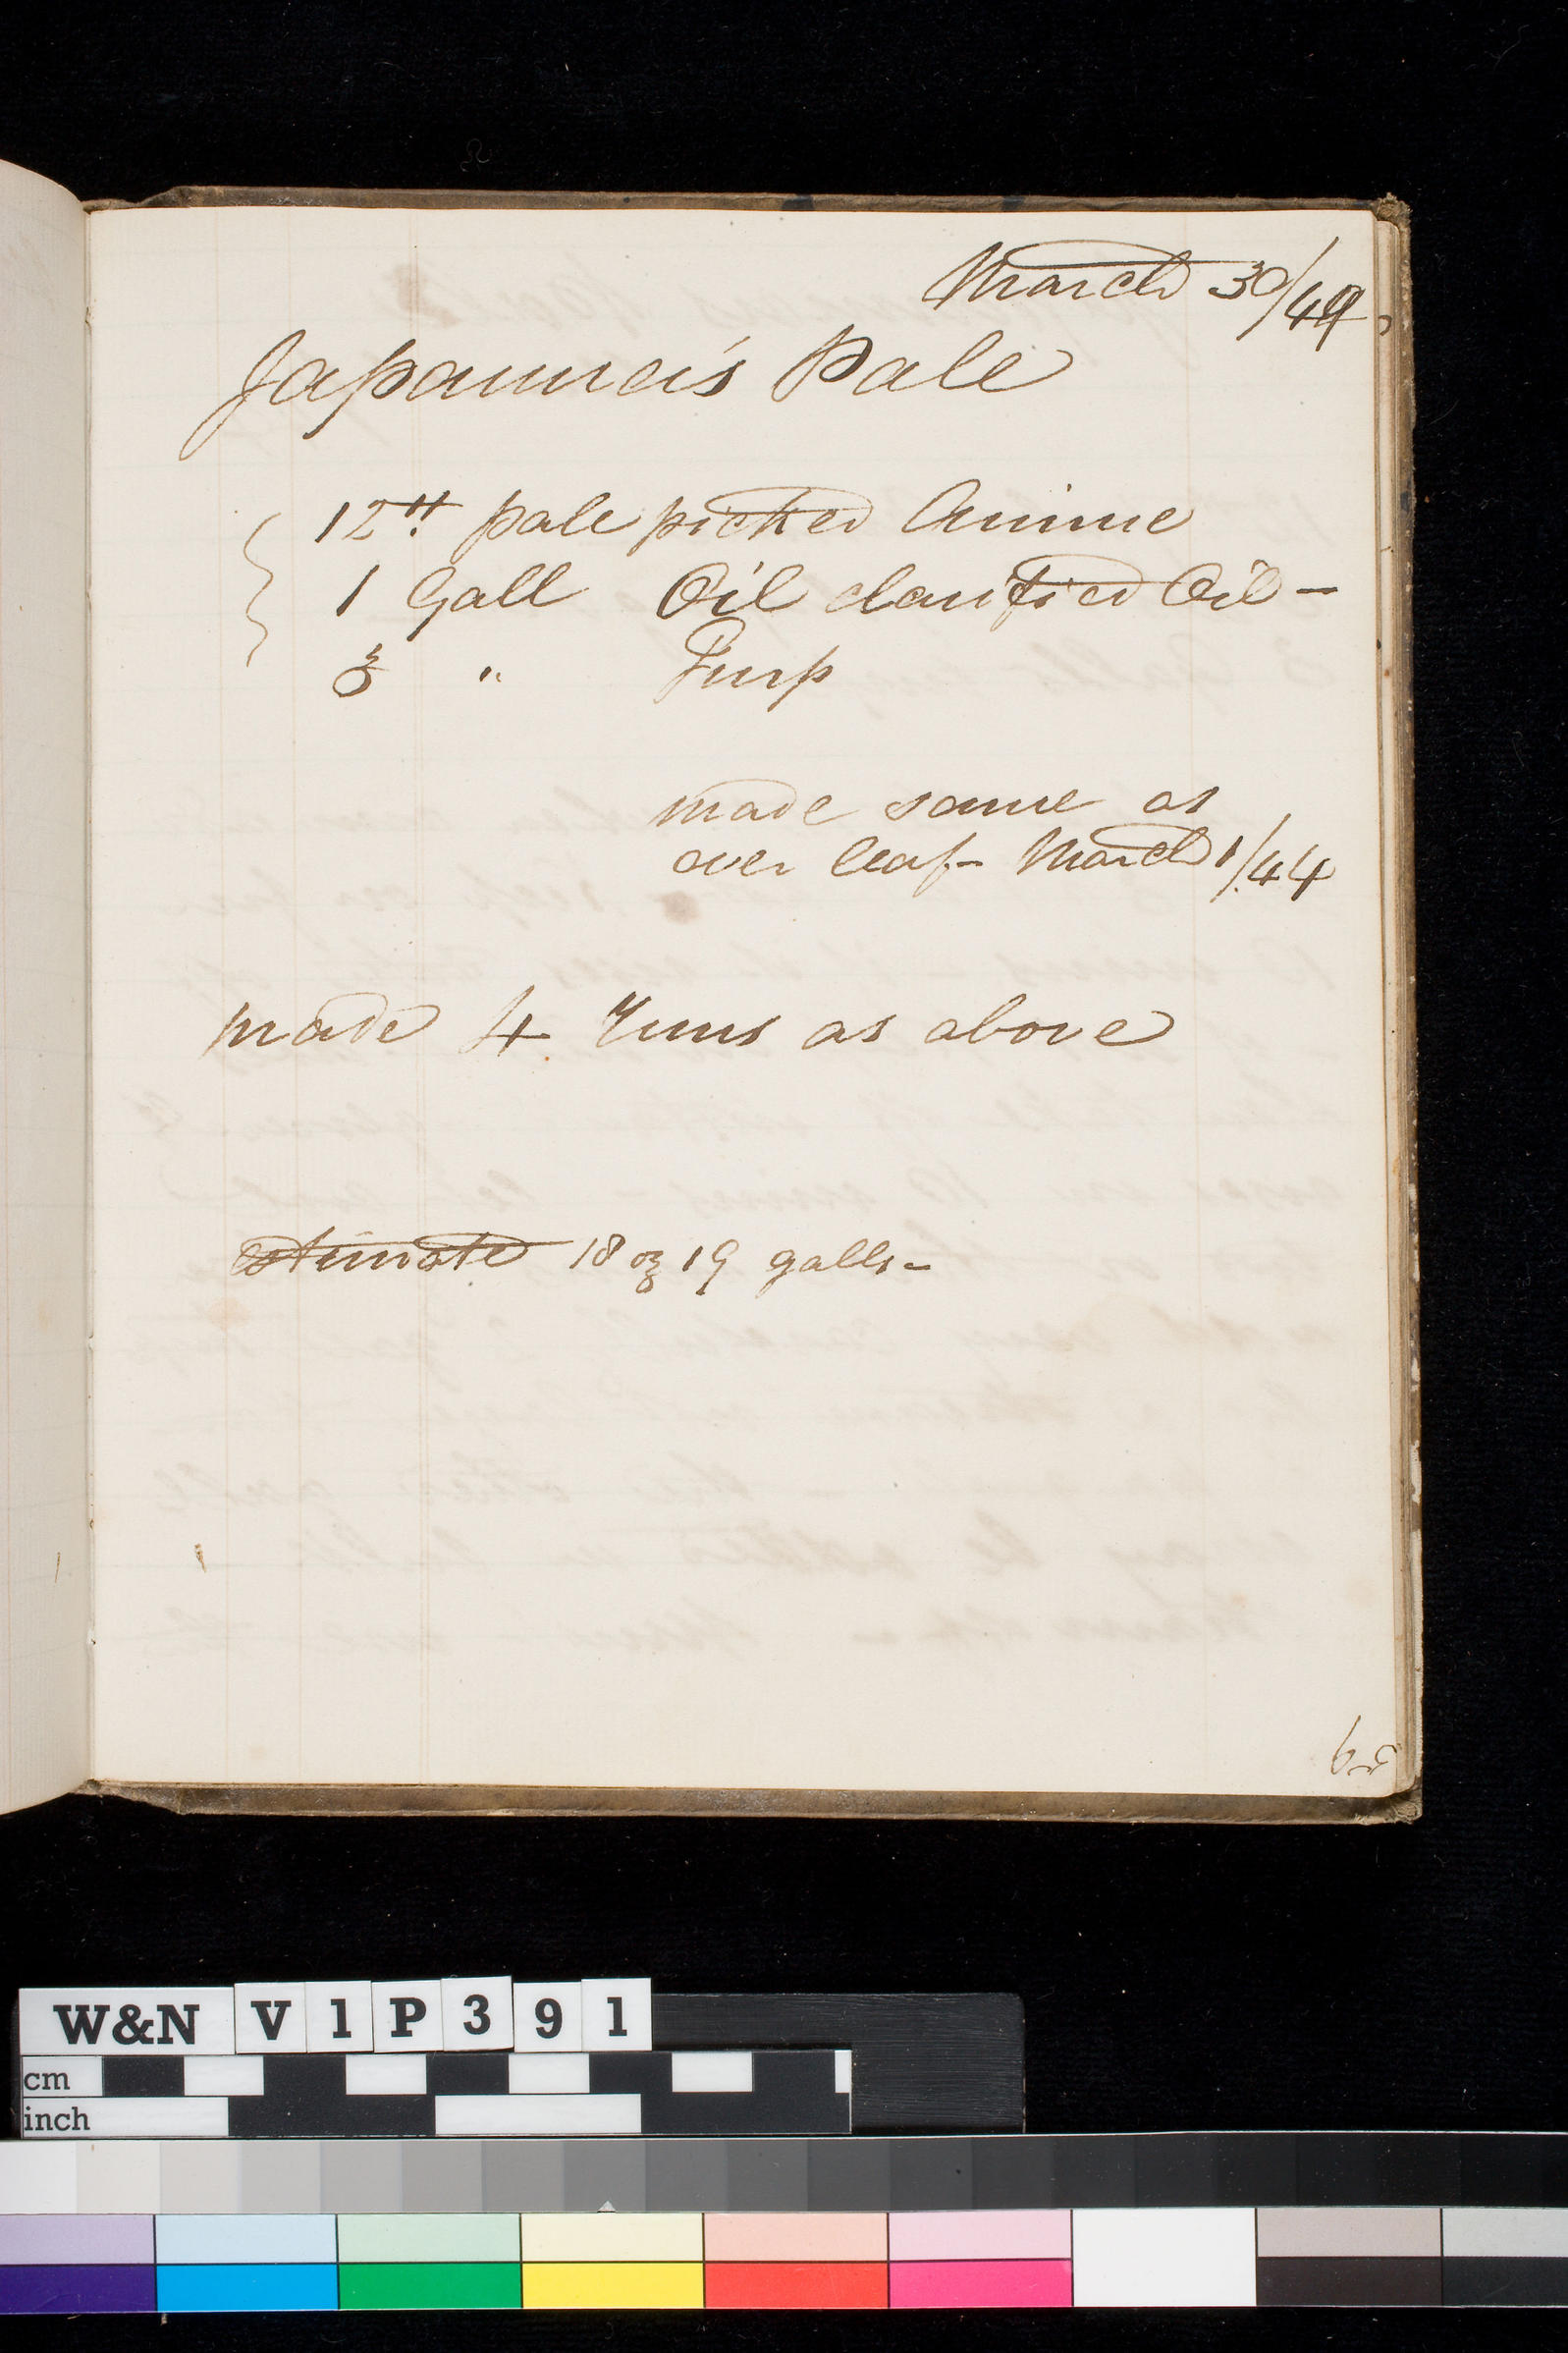 March 30/49
Japanner's Pale
12 lb pale picked Anime
1 Gall Oil clarified Oil -
3 " Turp
made same as
over leaf - March 1/44
made 4 Runs as above
estimate 18 or 19 galls -
W&N V1P391
cm
inch